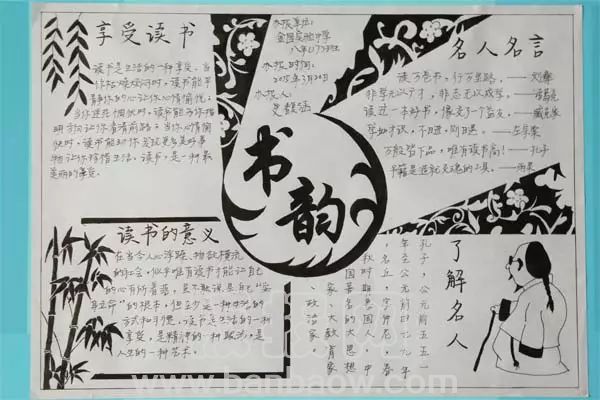 享受读书
读书是生活的一种享受。当
你枯燥烦闷时，读书能平
静你的心让你心情愉悦；
当你迷茫惆怅时，读书能为你指
明方向让你看清前路；当你心情愉
快时，读书能助你发现更多美好事
物让你珍惜生活。读书，是一种最
美丽的享受。
办报单位：
金图实验中学
八年（1）班
办报时间：
2015年3月20日
办报人：
名人名言
读万卷书，行万里路，——刘彝
非学无以广才，非志无以成学。——诸葛亮
读过一本好书，像交了个益友。——臧克家
学如才识，不日进，则日退。——左宗棠
万般皆下品，唯有读书高！——孔子
书籍是造就灵魂的工具。——雨果
书韵
读书的意义
在当今人心浮躁、物欲横流
的社会，似乎唯有读书才能让自己
的心有所着落，虽不敢说是自己“安
身立命”的根本，但至少是一种生活的
方式和习惯。读书是生活的一种
享受，是精神的一种，是
人生的一种艺术。
了解名人
孔子，公元前五五一
年丘，字仲尼，春
秋时期鲁国人，
国著名的大思想
家、大教育家
、政治家
www.banbaow.com